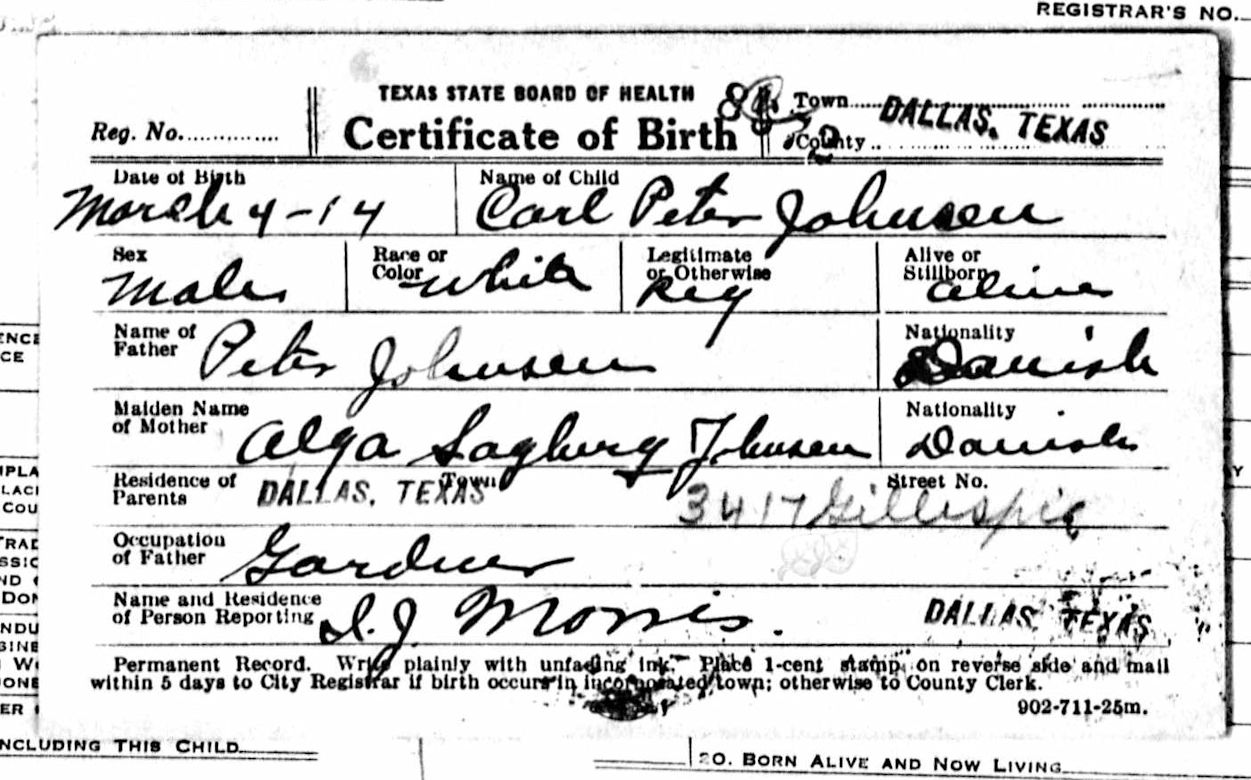 REGISTRAR'S NO.
TEXAS STATE BOARD OF HEALTH
Town DALLAS, TEXAS
Reg. No.
Certificate of Birth
County
Date of Birth
Name of Child
March 4-14
Carl Peter Johnsen
Sex
Race or Color
Legitimate or Otherwise
Alive or Stillborn
Male
White
Reg
alive
Name of Father
Peter Johnsen
Nationality
Danish
Maiden Name of Mother
Alga Sagburg Johnsen
Nationality
Danish
Residence of Parents
DALLAS, TEXAS
Town
Street No.
3417 Gillespie
Occupation of Father
Gardner
Name and Residence of Person Reporting
Morris.
DALLAS, TEXAS
Permanent Record. Write plainly with unfading ink. Place 1-cent stamp on reverse side and mail
within 5 days to City Registrar if birth occurs in incorporated town; otherwise to County Clerk.
902-711-25m.
NCLUDING THIS CHILD
20. BORN ALIVE AND NOW LIVING